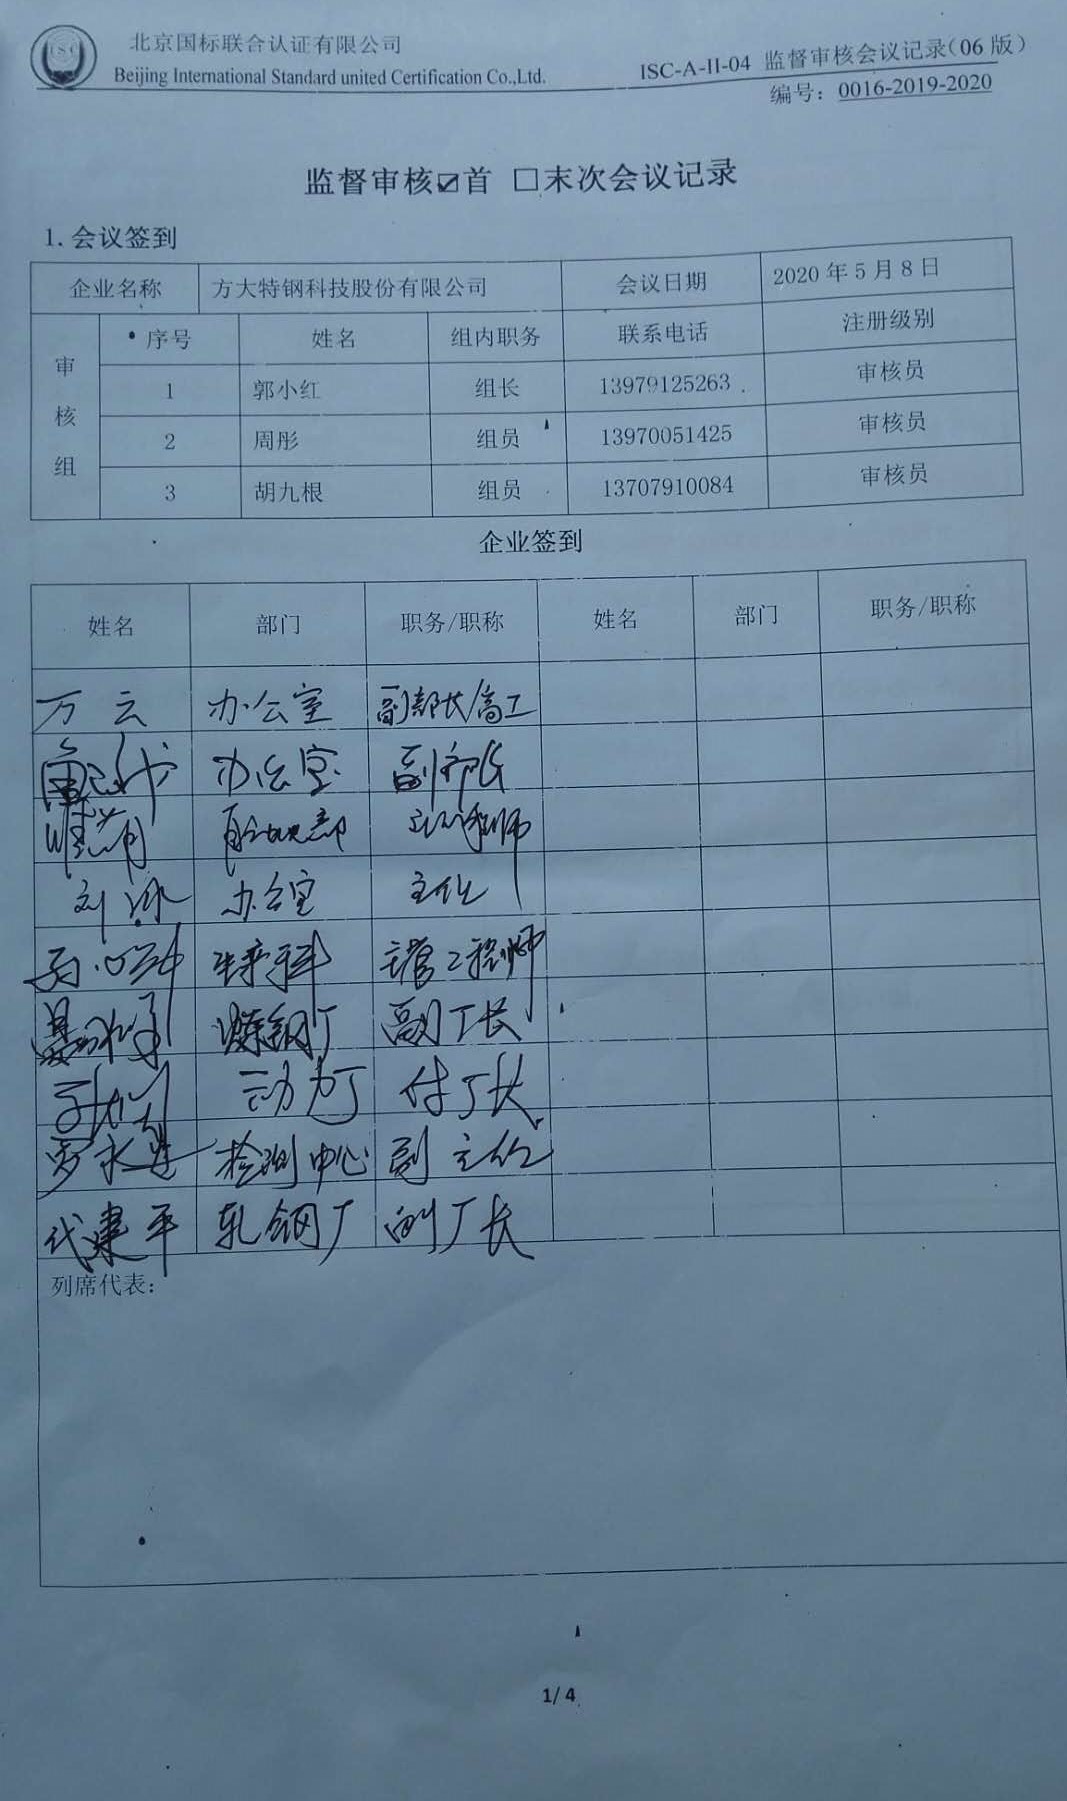 北京国标联合认证有限公司
Beijing International Standard united Certification Co.,Ltd.
ISC-A-II-04 监督审核会议记录(06 版)
编号: 0016-2019-2020
监督审核☑首 □末次会议记录
1. 会议签到
企业名称 方大特钢科技股份有限公司 会议日期 2020 年 5 月 8 日
审核组
序号 姓名 组内职务 联系电话 注册级别
1 郭小红 组长 13979125263 审核员
2 周彤 组员 13970051425 审核员
3 胡九根 组员 13707910084 审核员
企业签到
姓名 部门 职务/职称 姓名 部门 职务/职称
万云 办公室 副部长/高工
办公室 副部长
工程师
刘 办公室 主任
主管工程师
炼钢厂 副厂长
动力厂 付厂长
罗永 检测中心 副主任
代建平 轧钢厂 副厂长
列席代表:
1/ 4